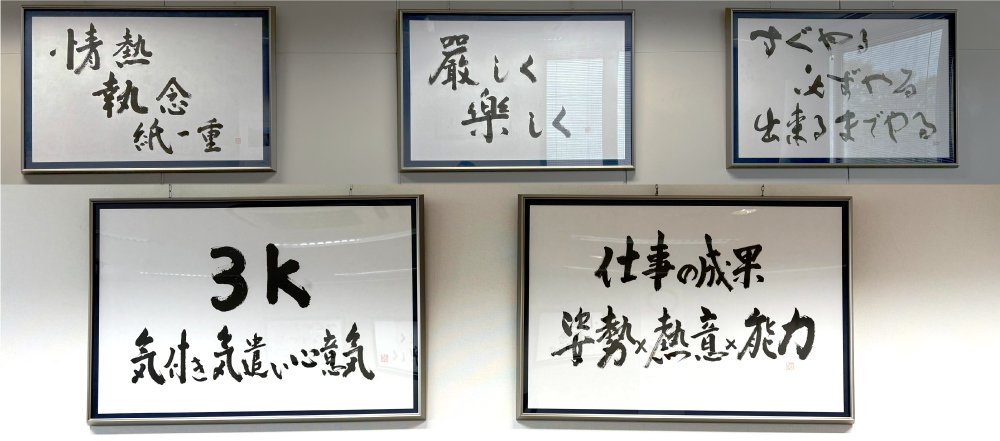 情熱
執念
紙一重
厳しく
楽しく
すぐやる
必ずやる
出来るまでやる
3K
気付き気遣い心意気
仕事の成果
姿勢×熱意×能力